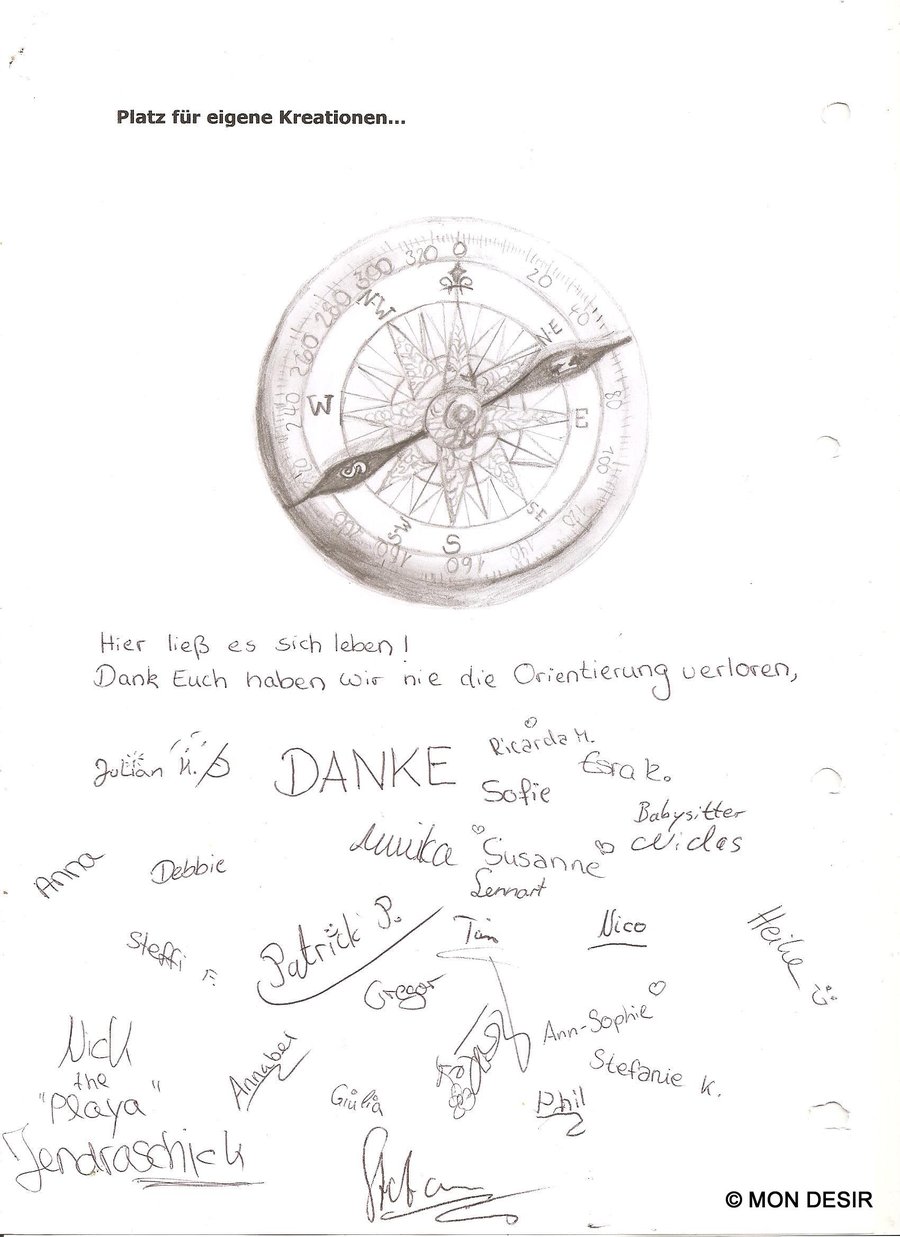 Platz für eigene Kreationen...
0
20
40
80
100
120
140
160
180
200
240
260
280
300
320
N-W
N-E
N
W
E
S
S-W
S-E
S
Hier ließ es sich leben!
Dank Euch haben wir nie die Orientierung verloren,
Julian H.
DANKE
Ricarda M.
Esra K.
Sofie
Babysitter
Annika
Susanne
Anna
Debbie
Lennart
Steffi F.
Patrick P.
Tim
Nico
Heike
Gregor
Ann-Sophie
Nick
the
"Playa"
Annabel
Giulia
Stefanie K.
Phil
Jendraschick
Stefan
© MON DESIR